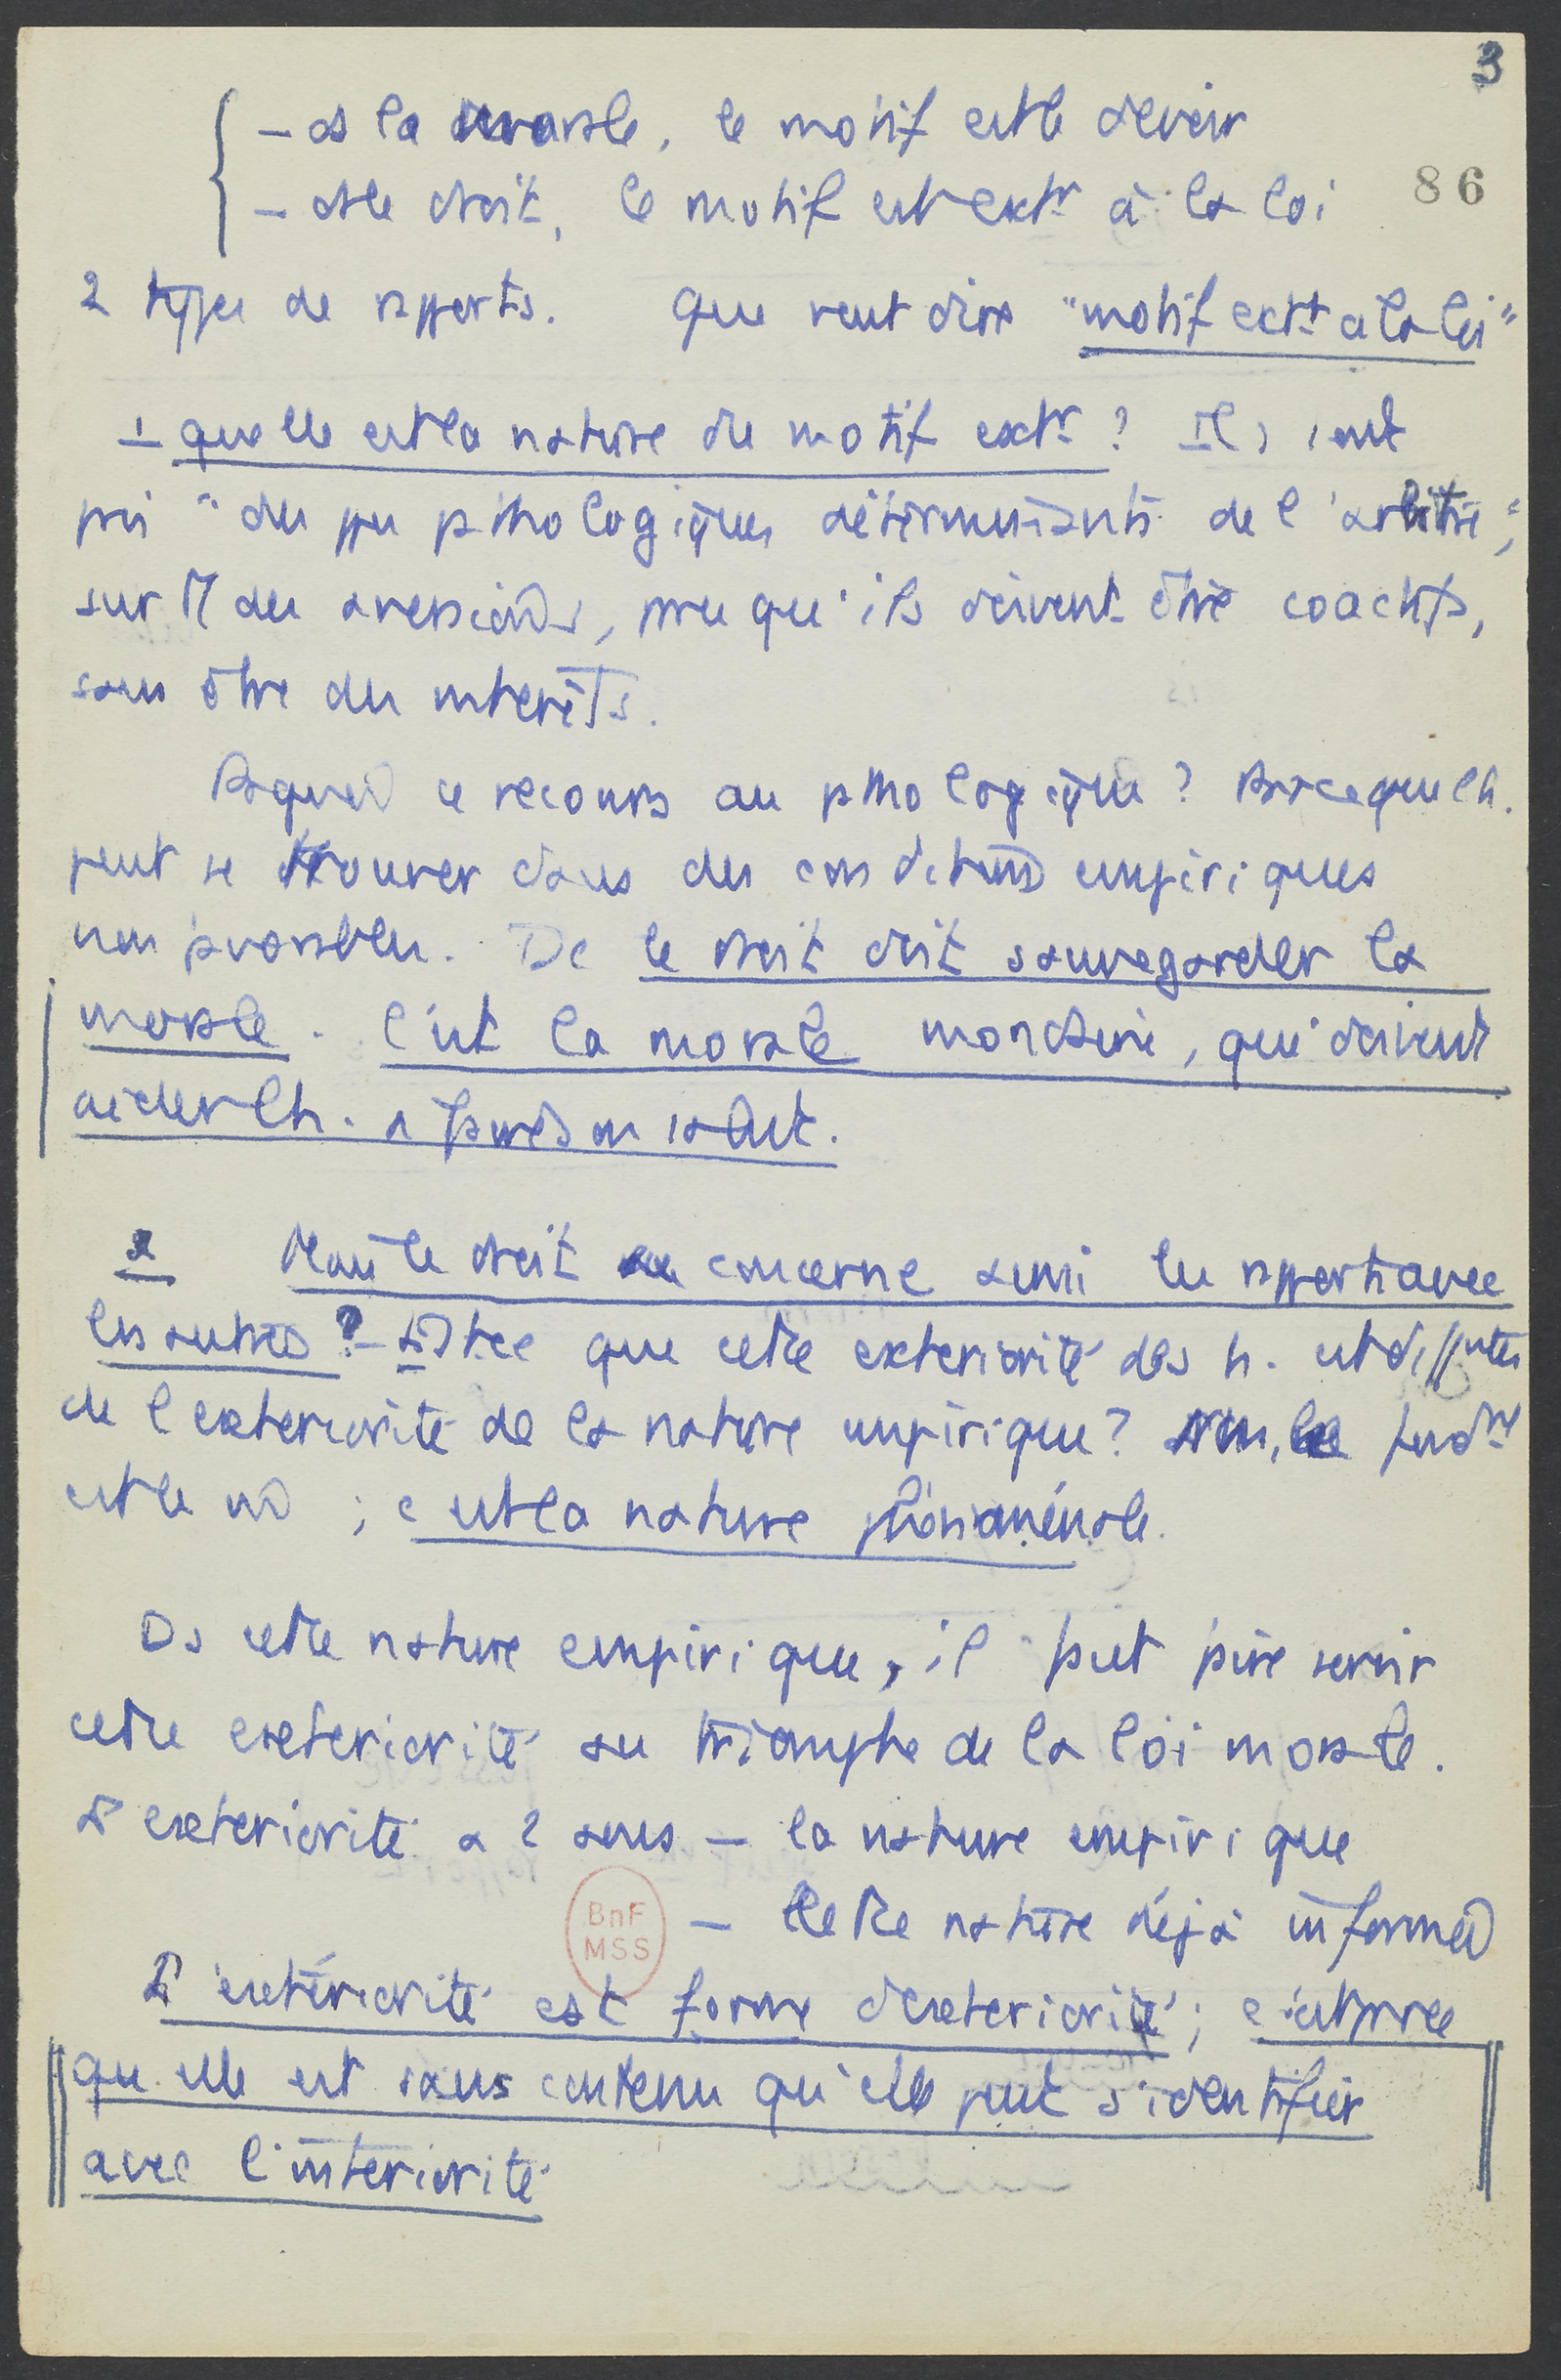 3
- ds la morale, le motif est le devoir
- ds le droit, le motif est extr à la loi
86
2 types de rapports. Que veut dire "motif extr à la loi"
1 quelle est la nature du motif extr ? Ils sont
pris "des ppes pathologiques déterminants de l'arbitre",
sur des aversions, pce qu'ils doivent être coactifs,
sans être des intérêts.
Pourquoi ce recours au pathologique ? Parce que l'h.
peut se trouver dans des conditions empiriques
non favorables. Dc le droit doit sauvegarder la
morale. C'est la morale mondaine, qui devient
aider l'h. à faire son salut.
2 Mais le droit concerne aussi les rapports avec
les autres ? - Est-ce que cette extériorité des h. est différente
de l'extériorité de la nature empirique ? Non, le
est le ; c'est la nature phénoménale.
Ds cette nature empirique, il faut faire servir
cette extériorité au triomphe de la loi morale.
L'extériorité a 2 sens - la nature empirique
- cette nature déjà informée
L'extériorité est forme d'extériorité ; c'est parce
qu'elle est sans contenu qu'elle peut s'identifier
avec l'intériorité
BnF
MSS